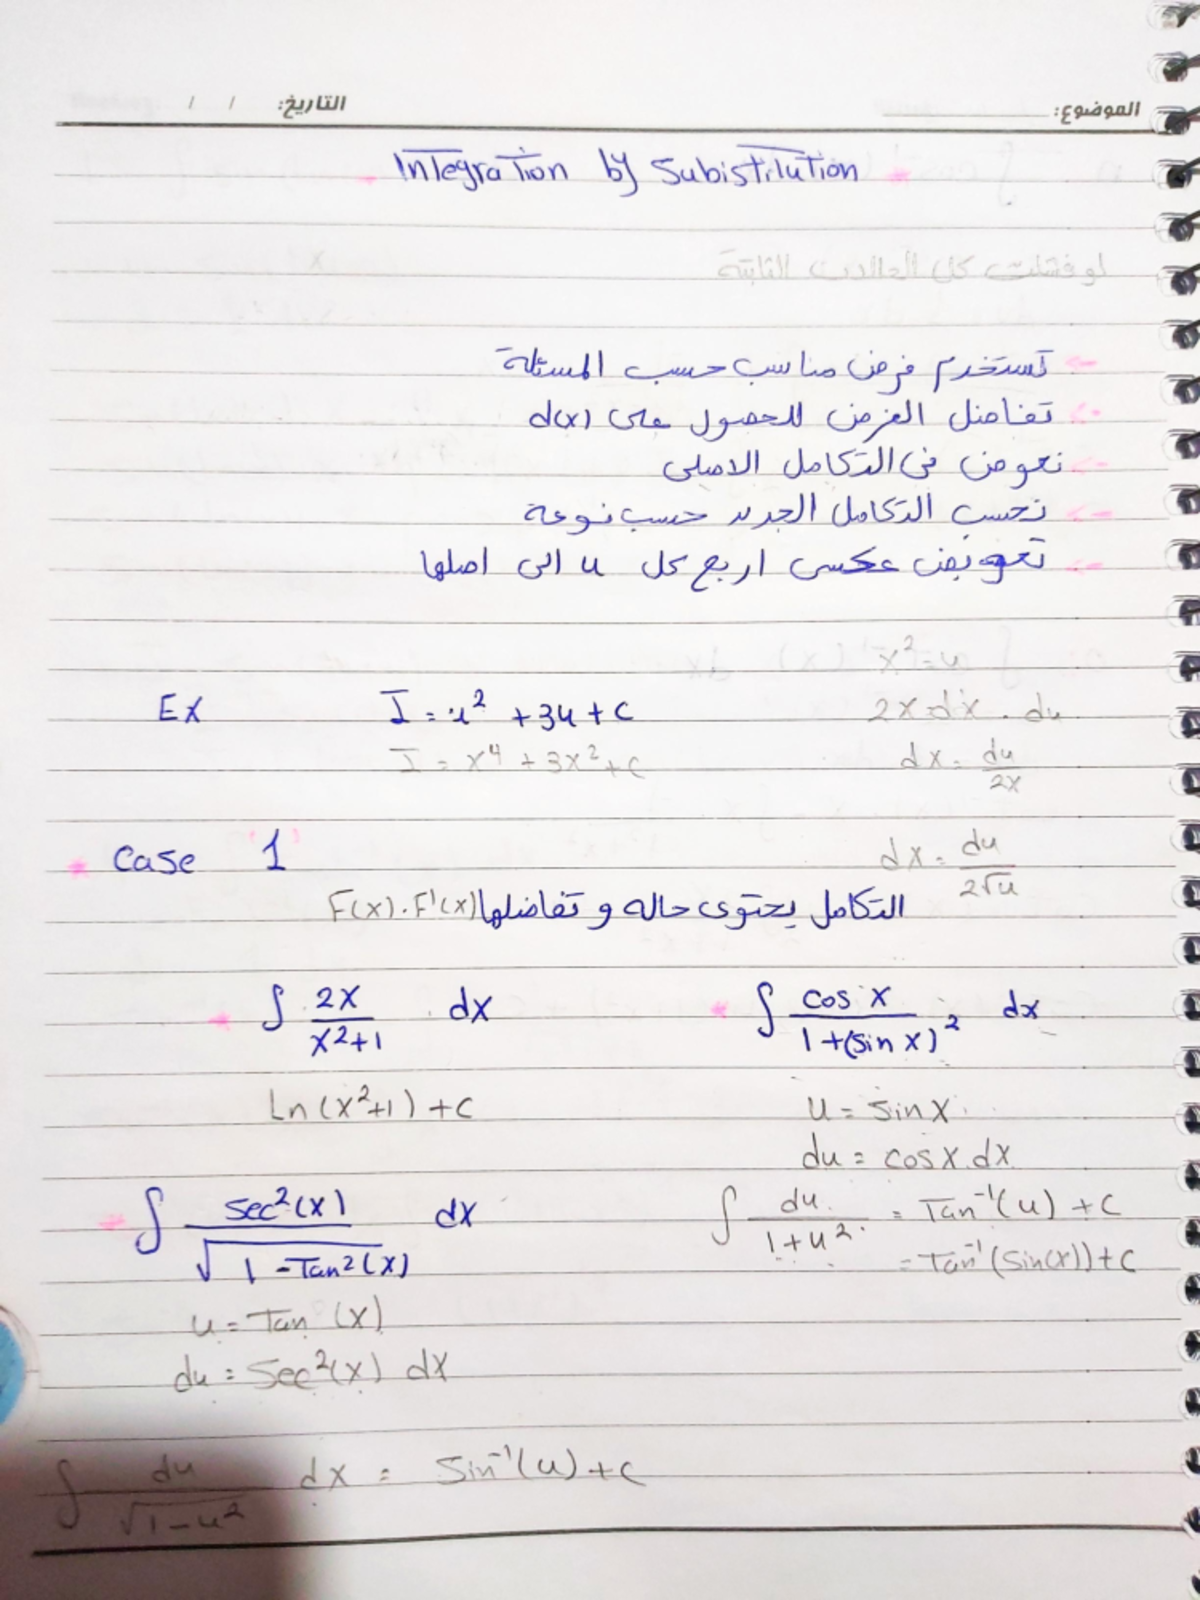 الموضوع: التاريخ: / /
Integration by Subistilution
لو فشلت كل الحالات الثابتة
← تستخدم فرض مناسب حسب المسئلة
← تفاضل الفرض للحصول على d(x)
← نعوض في التكامل الاصلى
← نحسب التكامل الجديد حسب نوعة
← تعويض عكسى ارجع كل u الى اصلها
x² = u
Ex I = u² + 3u + c 2x dx = du
I = x⁴ + 3x² + c dx = du/2x
* Case 1 dx = du/2√u
التكامل يحتوى حاله و تفاضلها F(x).F'(x)
∫ 2x/(x²+1) dx
Ln(x²+1) + c
* ∫ cos x/(1+(sin x)²) dx
u = sin x
du = cos x.dx
∫ du/(1+u²) = Tan⁻¹(u) + c
= Tan⁻¹(sin(x)) + c
∫ sec²(x)/√(1-Tan²(x)) dx
u = Tan(x)
du = Sec²(x) dx
∫ du/√(1-u²) dx = Sin⁻¹(u) + c